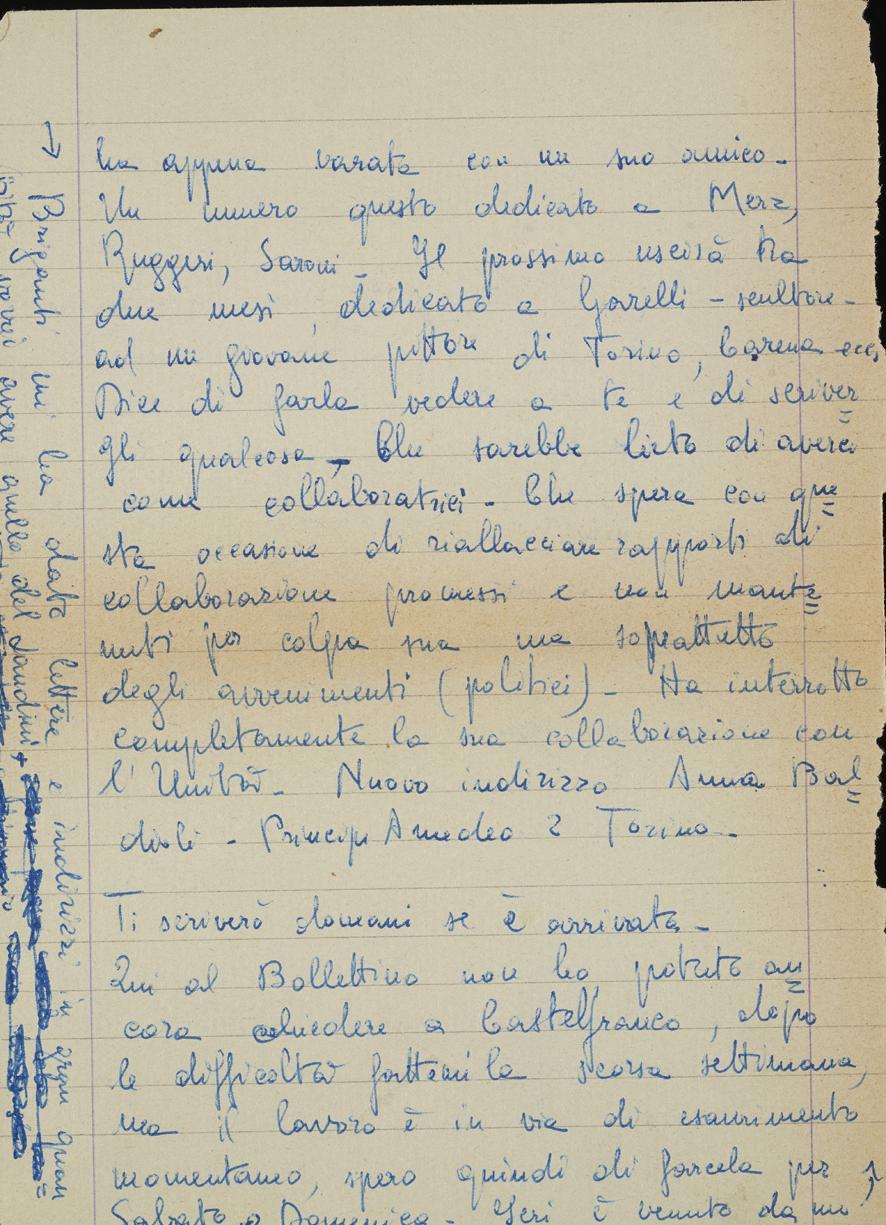 ha appena varata con un suo amico -
Un numero questo dedicato a Merz,
Ruggeri, Saroni - Il prossimo uscirà tra
due mesi, dedicato a Garelli - scultore -
ad un giovane pittore di Torino, Carena ecc,
Dice di farla vedere a te e di scriver=
gli qualcosa - Che sarebbe lieto di averci
come collaboratrici - Che spera con que=
sta occasione di riallacciare rapporti di
collaborazione promessi e non mante=
nuti per colpa sua ma soprattutto
degli avvenimenti (politici) - Ha interrotto
completamente la sua collaborazione con
l'Unità - Nuovo indirizzo Anna Bal=
dioli - Principi Amedeo 2 Torino -
Ti scriverò domani se è arrivata -
Qui al Bollettino non ho potuto an=
cora chiedere a Castelfranco, dopo
le difficoltà fattemi la scorsa settimana,
ma il lavoro è in via di esaurimento
momentaneo, spero quindi di farcela per
Sabato o Domenica - Ieri è venuto da me,
→ Briganti mi ha dato lettere e indirizzi in gran quan=
tità vorrei avere quello del Landini +